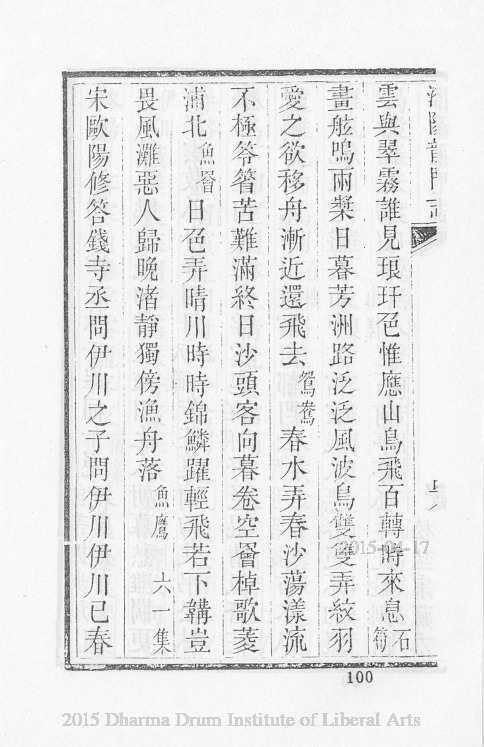 洛陽龍門志
雲與翠霧誰見琅玕色惟應山鳥飛百轉時來息石筍
畫舷鳴兩槳日暮芳洲路泛泛風波鳥雙雙弄紋羽
愛之欲移舟漸近還飛去鴛鴦春水弄春沙蕩漾流
不極笭箵苦難滿終日沙頭客向暮卷空罾棹歌菱
浦北魚罾日色弄晴川時時錦鱗躍輕飛若下韝豈
畏風灘惡人歸晚渚靜獨傍漁舟落魚鷹 六一集
宋歐陽修答錢寺丞問伊川之子問伊川伊川已春
100
2015-04-17
2015 Dharma Drum Institute of Liberal Arts